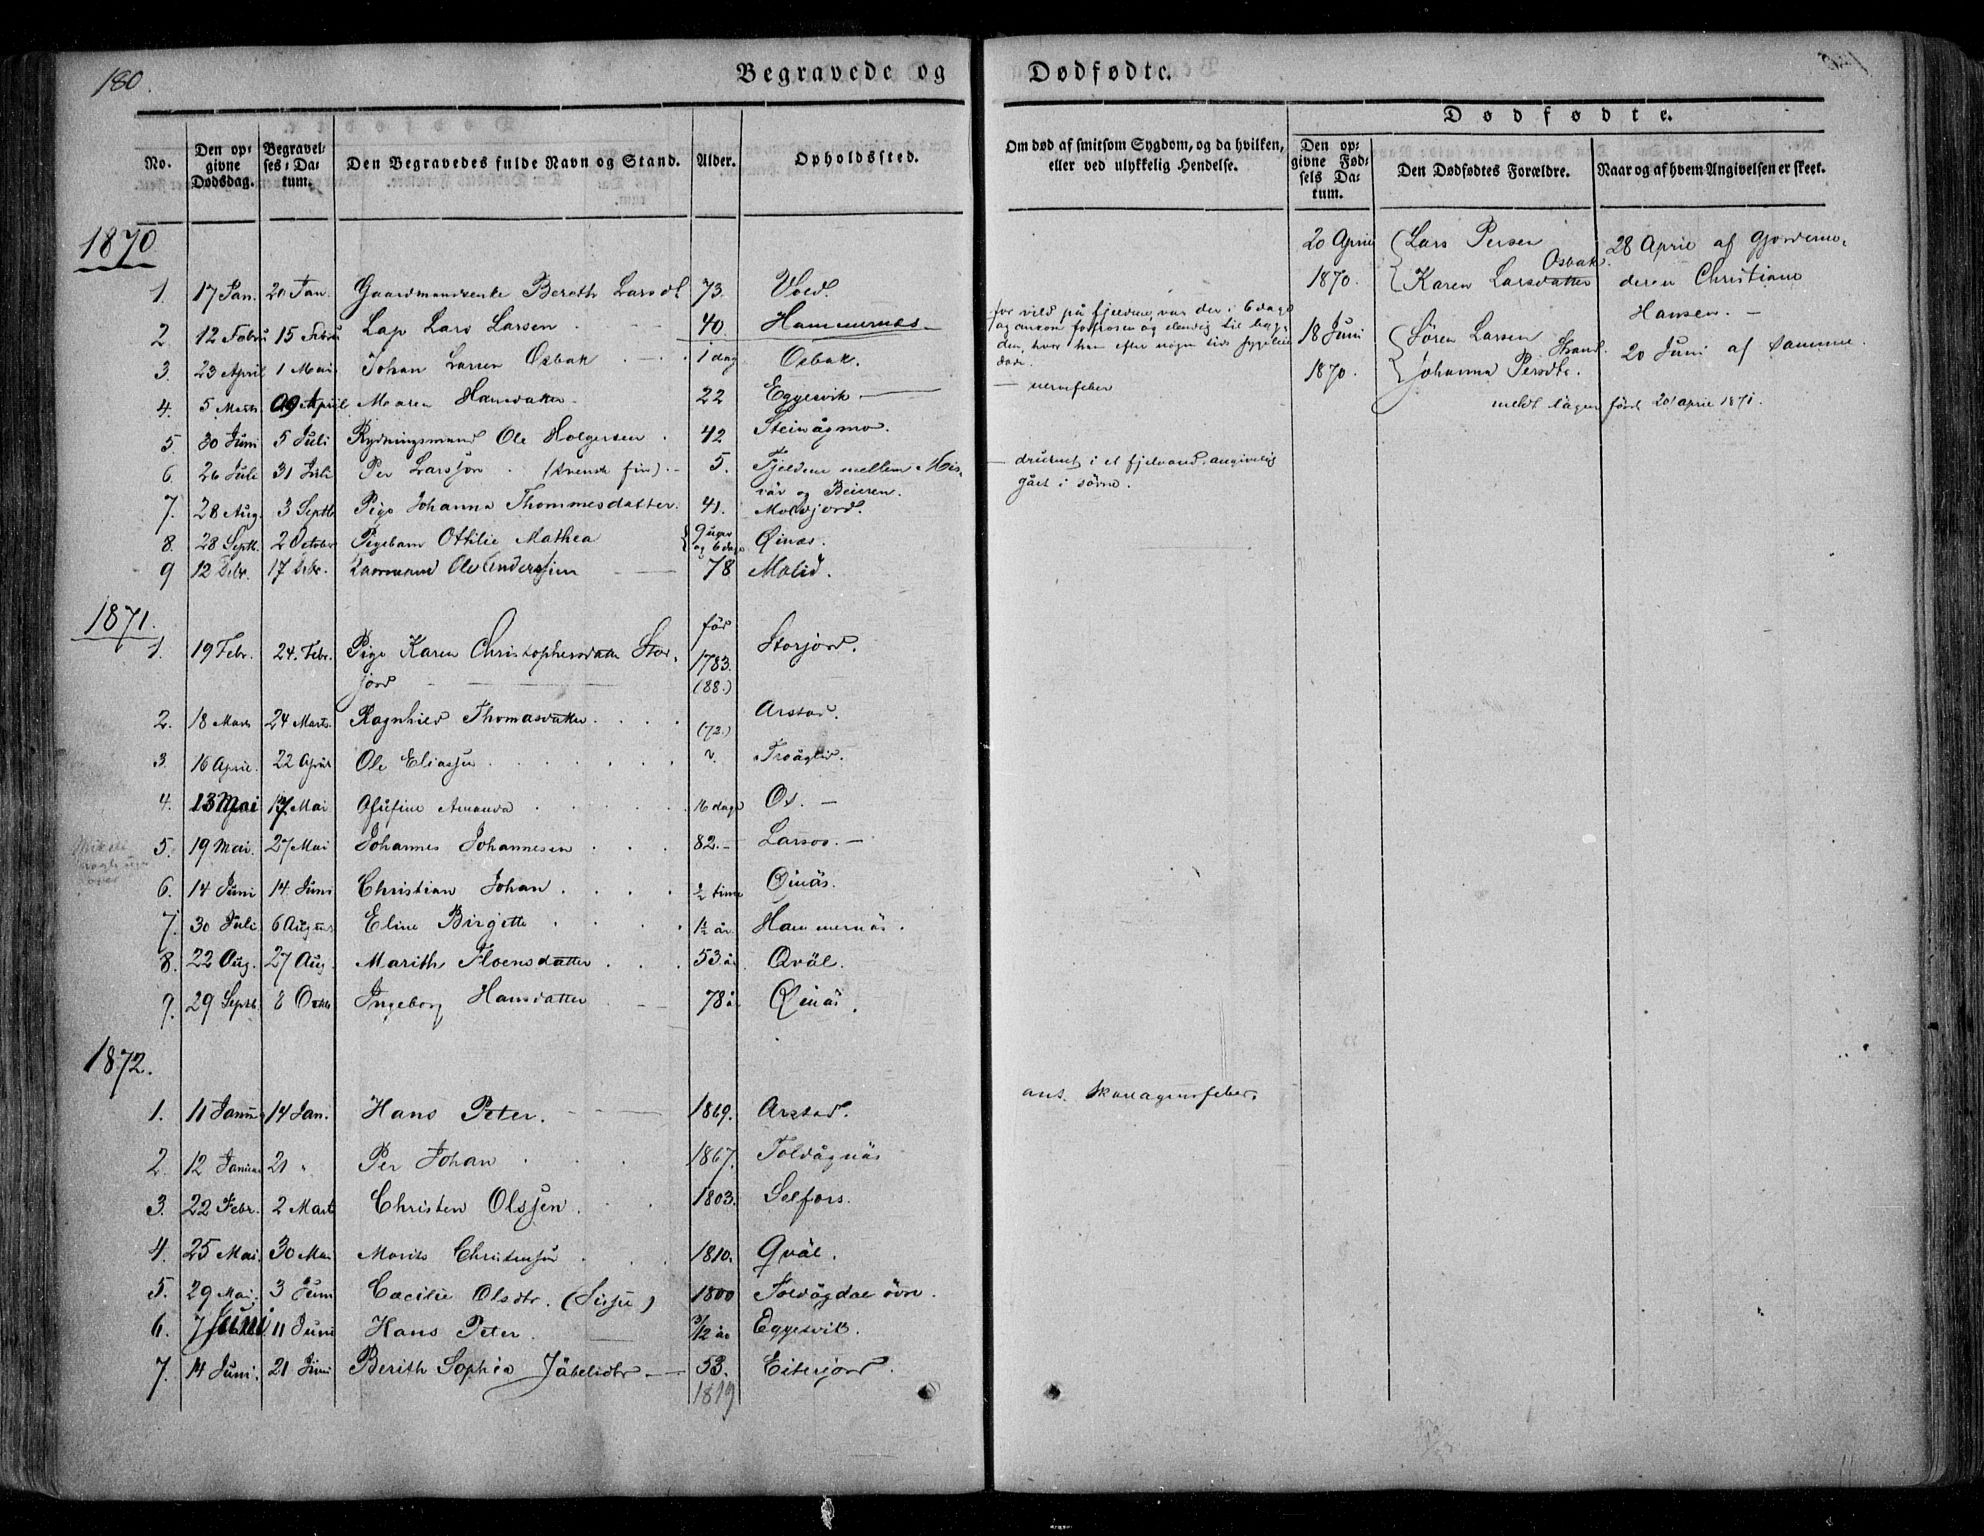 180.
Begravede og Dødfødte.
No. Den opgivne Dødsdag. Begravelses-Datum. Den Begravedes fulde Navn og Stand. Alder. Opholdssted. Om død af smitsom Sygdom, og da hvilken, eller ved ulykkelig Hendelse.
Dødfødte.
Den opgivne Fødsels Datum. Den Dødfødtes Forældre. Naar og af hvem Angivelsen er skeet.
1870
1. 17 Jan. 20 Jan. Gaardmandsenke Bereth Larsdt 73. Vold.
2. 12 Febru 15 Febru Lap Lars Larsen 40. Hammernæs
for vild på fjeldene, var der i 6 dage
og ankom forfrosen og elendig til byg-
den, hvor han efter nogen tids sygeleie
døde.
3. 23 April 1 Mai Johan Larsen Osbak 1 dag Osbak.
4. 5 Marts 09 April Maren Hansdatter 22 Eggesvik — nervefeber
5. 30 Juni 5 Juli Rydningsmand Ole Holgersen 42 Steinågmo.
6. 26 Juli 31 Juli Per Larssøn (svensk fin) 5. Fjeldene mellem Mis-
vär og Beieren.
— druknet i et fjelvand, angivelig
gået i søvne.
7. 28 Aug. 3 Septb Pige Johanna Thommesdatter. 41. Moldjord.
8. 28 Septb. 2 October Pigebarn Ottilie Mathea 9 uger og 6 dage Qinæs.
9 12 Debr. 17 Debr. Kaarmand Ole Anderssen 78 Molid.
20 April 1870. Lars Persen Osbak
Karen Larsdatter
28 April af Gjordemo-
deren Christiane
Hansen. —
18 Juni 1870. Sören Larsen Strand.
Johanna Persdtr.
20 Juni af samme.
meldt lägen förd 20' april 1871.
1871.
1. 19 Febr. 24. Febr. Pige Karen Christophersdatter Stor-
jord
fød 1783. (88.) Storjord.
2. 18 Marts 24 Marts. Ragnhild Thomasdatter (72.) Arstad.
3. 16 April. 22 April Ole Eliassen Troåglid.
4. 13 Mai 17 Mai Ofufine Amanda 16 dage Os. —
5. 19 Mai. 27 Mai Johannes Johannesen 82. — Larsos. —
6. 14 Juni 14. Juni Christian Johan ½ time Qinäs.
7. 30 Juli 6 August Eline Birgitte 1½ år Hammernäs.
8. 22 Aug. 27 Aug. Marith Floensdatter 53 år Qväl.
9. 29 Septb. 8 Octbr Ingeborg Hansdatter 78 år Qinäs.
1872.
1. 11 Januar 14 Jan. Hans Peter. 1869. Arstad. ans. Skarlagensfeber.
2. 12 Januar 21 " Per Johan 1867. Toldågnäs
3. 22 Febr. 2 Marts Christen Olssen. 1803. Selfors.
4. 25 Mai 30 Mai Morits Christensen 1810. Qväl.
5. 29 Mai. 3 Juni Cæcilie Olsdtr. (Sisse) 1800 Toldågdal øvre.
6. 7 Juni 11 Juni Hans Peter. 3/12 år Eggesvik.
7. 14 Juni. 21 Juni Berith Sophia Jäbelsdtr 53. Eiterjord.
1819